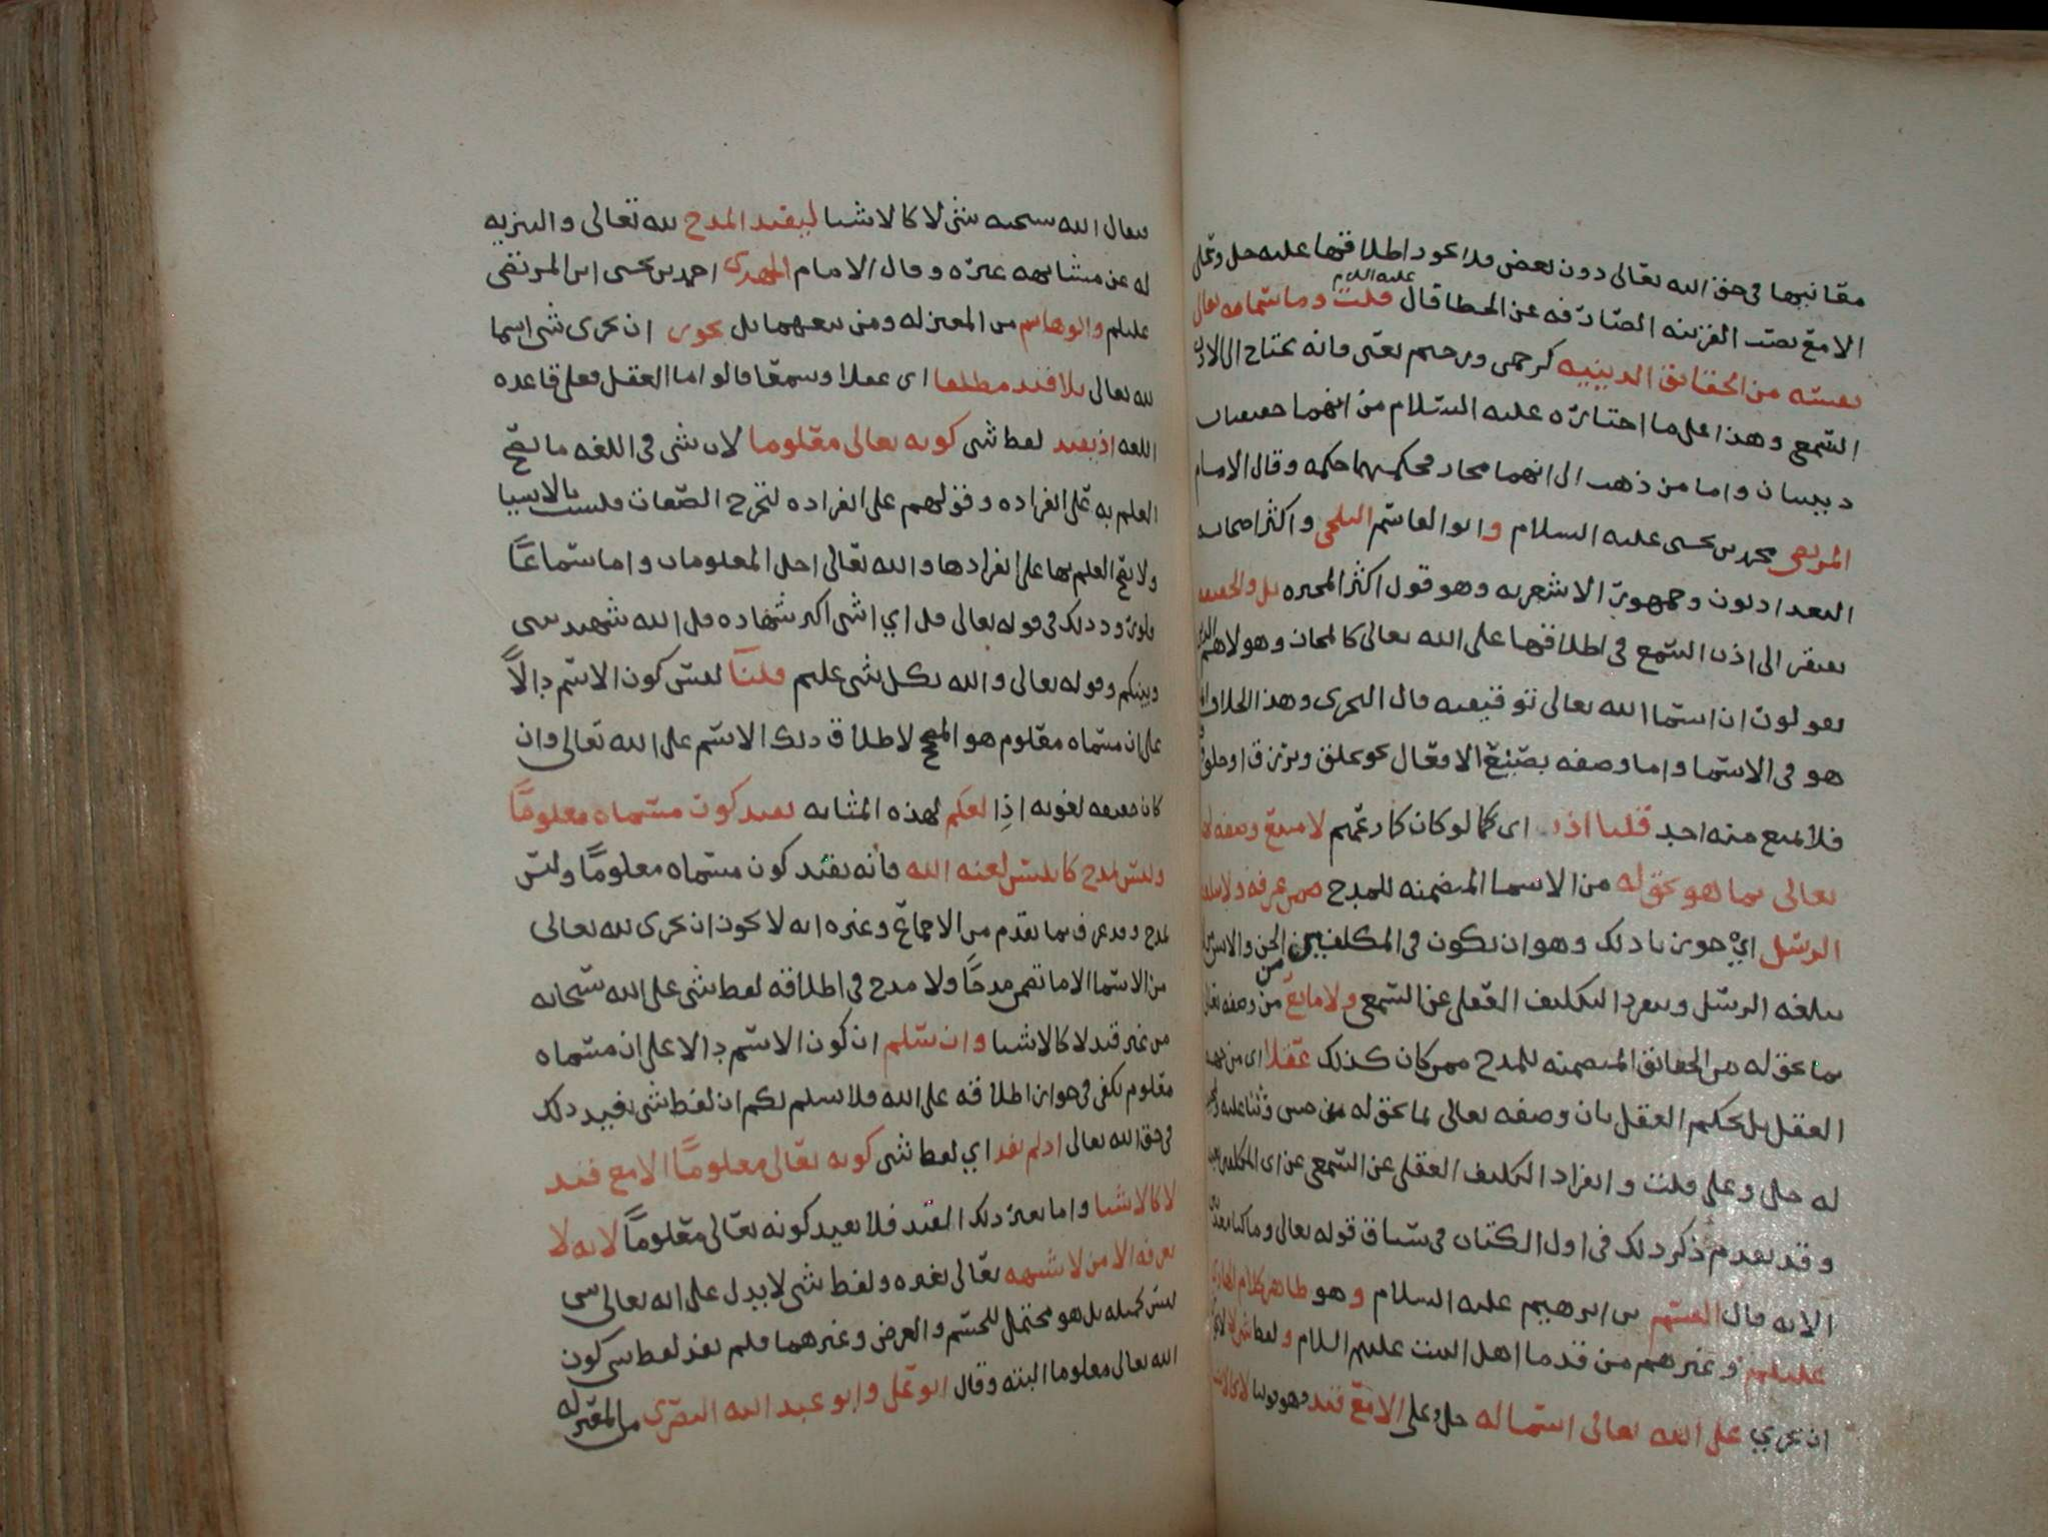 معانيها في حق الله تعالى دون بعض فلا يجوز اطلاقها عليه جل وعلى
الا مع نصب القرينه الصارفه عن الخطا قال عليه السلام قلت وما سماه الله تعالى
نفسه من الحقائق الدينيه كرحمن ورحيم يعني فانه يحتاج الى الاذن
السمعي وهذا على ما اختاره عليه السلام من انهما حقيقتان
دينيتان واما من ذهب الى انهما مجاز فحكمهما حكمه وقال الامام
المرتضى محمد بن يحيى عليه السلام وابو القاسم البلخي واكثر اصحابه
البغداديون وجمهور الاشعريه وهو قول اكثر المجبره بل والحقيقه
يفتقر الى اذن السمع في اطلاقها على الله تعالى كالمجاز وهولاء هم الذين
يقولون ان اسما الله تعالى توقيفيه قال النجري وهذا الخلاف
هو في الاسما واما وصفه بصيغ الافعال نحو يخلق ويرزق او خلق
فلا يمنع منه احد قلنا اذن اي كما لو كان كما زعمتم لامتنع وصفه
تعالى بما هو يحق له من الاسما المتضمنه للمدح ممن عرفه ولم تبلغه
الرسل اي جوزنا ذلك وهو ان يكون في المكلفين من الجن والانس من لم
تبلغه الرسل وينفرد التكليف العقلي عن السمعي ولا مانع من وصفه تعالى
بما يحق له من الحقائق المتضمنه للمدح ممن كان كذلك عقلا اي من جهه
العقل بل يحكم العقل بان وصفه تعالى بما يحق له من حسن وثنا عليه
له جل وعلى قلت وانفراد التكليف العقلي عن السمعي عن اي المكلفين
وقد تقدم ذكر ذلك في اول الكتاب في سياق قوله تعالى وما كنا معذبين
الايه قال القسم بن ابرهيم عليه السلام وهو ظاهر كلام الهادي
عليلم وغيرهم من قدما اهل البيت عليهم السلام ولفظ شي لا يجوز
ان يجري على الله تعالى اسما له جل وعلى الا مع قيد وهو قولنا لا كالاشيا
فيقال الله سبحنه شي لا كالاشيا ليفيد المدح لله تعالى والتنزيه
له عن مشابهه غيره وقال الامام المهدي احمد بن يحيى ابن المرتضى
عليلم وابو هاشم من المعتزله ومن تبعهما بل يجوز ان يجرى شي اسما
لله تعالى بلا قيد مطلقا اي عقلا وسمعا قالوا اما العقل فعلى قاعده
اللغه اذ يفيد لفظ شي كونه تعالى معلوما لان شي في اللغه ما يصح
العلم به على انفراده وقولهم على انفراده لتخرج الصفات فليست بالاشيا
ولا يصح العلم بها على انفرادها والله تعالى اجل المعلومات واما سماعا
فلورود ذلك في قوله تعالى قل اي شي اكبر شهاده قل الله شهيد بيني
وبينكم وقوله تعالى والله بكل شي عليم قلنا ليس كون الاسم دالا
على ان مسماه معلوم هو المصحح لاطلاق ذلك الاسم على الله تعالى وان
كان حقيقه لغويه اذا لعلم لهذه المثابه يفيد كون مسماه معلوما
وليس بمدح كابليس لعنه الله فانه يفيد كون مسماه معلوما وليس
بمدح وقد عرف بما تقدم من الاجماع وغيره انه لا يجوز ان يجرى لله تعالى
من الاسما الا ما تضمن مدحا ولا مدح في اطلاقه لفظ شي على الله سبحانه
من غير قيد لا كالاشيا وان سلم ان كون الاسم دالا على ان مسماه
معلوم يكفي في جواز اطلاقه على الله فلا نسلم لكم ان لفظ شي يفيد ذلك
في حق الله تعالى اذ لم يفد اي لفظ شي كونه تعالى معلوما الا مع قيد
لا كالاشيا واما بغير ذلك القيد فلا يفيد كونه تعالى معلوما لانه لا
يعرفه الا من لا يشبهه تعالى بغيره ولفظ شي لا يدل على انه تعالى شي
ليس كمثله بل هو محتمل للجسم والعرض وغيرهما فلم يفد لفظ شي كون
الله تعالى معلوما البته وقال ابو علي وابو عبد الله البصري من المعتزله